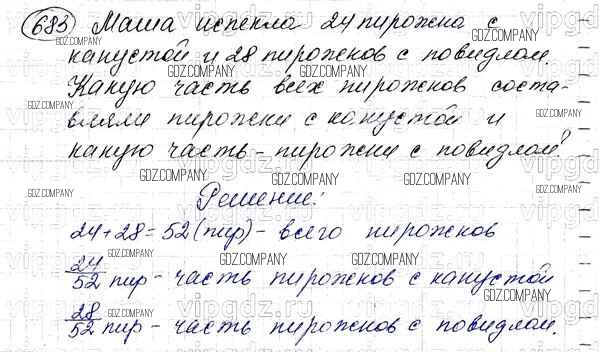 683 Маша испекла 24 пирожка с
капустой и 28 пирожков с повидлом.
Какую часть всех пирожков соста-
вляли пирожки с капустой и
какую часть - пирожки с повидлом?
Решение:
24+28=52(пир)- всего пирожков
24/52 пир - часть пирожков с капустой
28/52 пир - часть пирожков с повидлом.
GDZ.COMPANY
vipgdz.ru